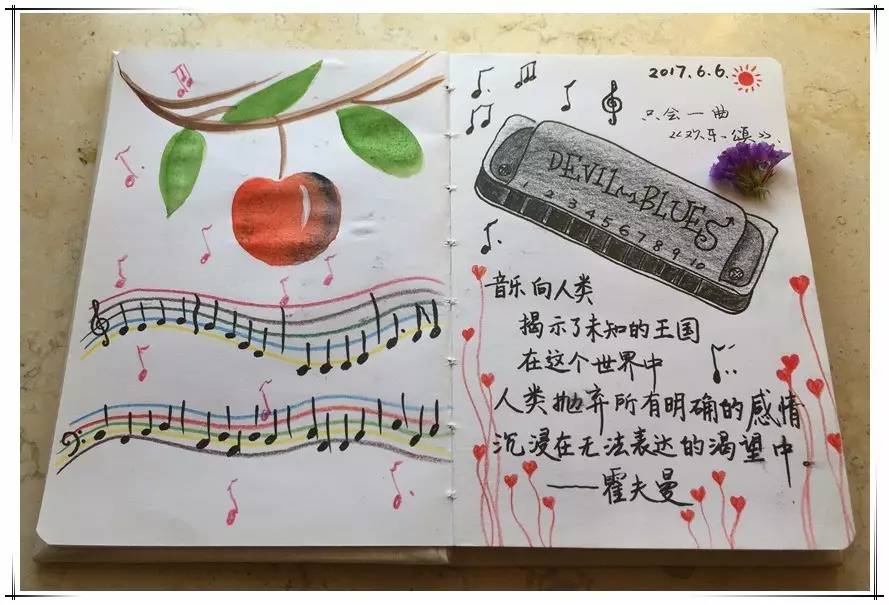 2017.6.6.
只会一曲
《欢乐颂》.
DEVIL BLUES
1 2 3 4 5 6 7 8 9 10
音乐向人类
揭示了未知的王国
在这个世界中
人类抛弃所有明确的感情
沉浸在无法表达的渴望中.
——霍夫曼